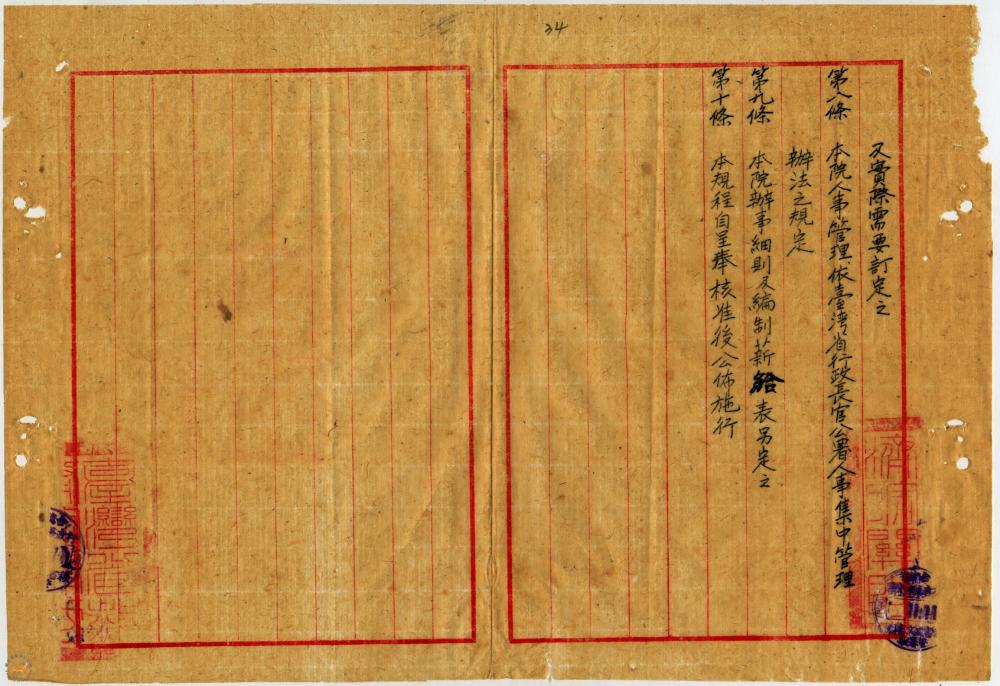 34
及實際需要訂定之
第八條 本院人事管理依臺灣省行政長官公署人事集中管理
辦法之規定
第九條 本院辦事細則及編制薪給表另定之
第十條 本規程自呈奉核准後公佈施行